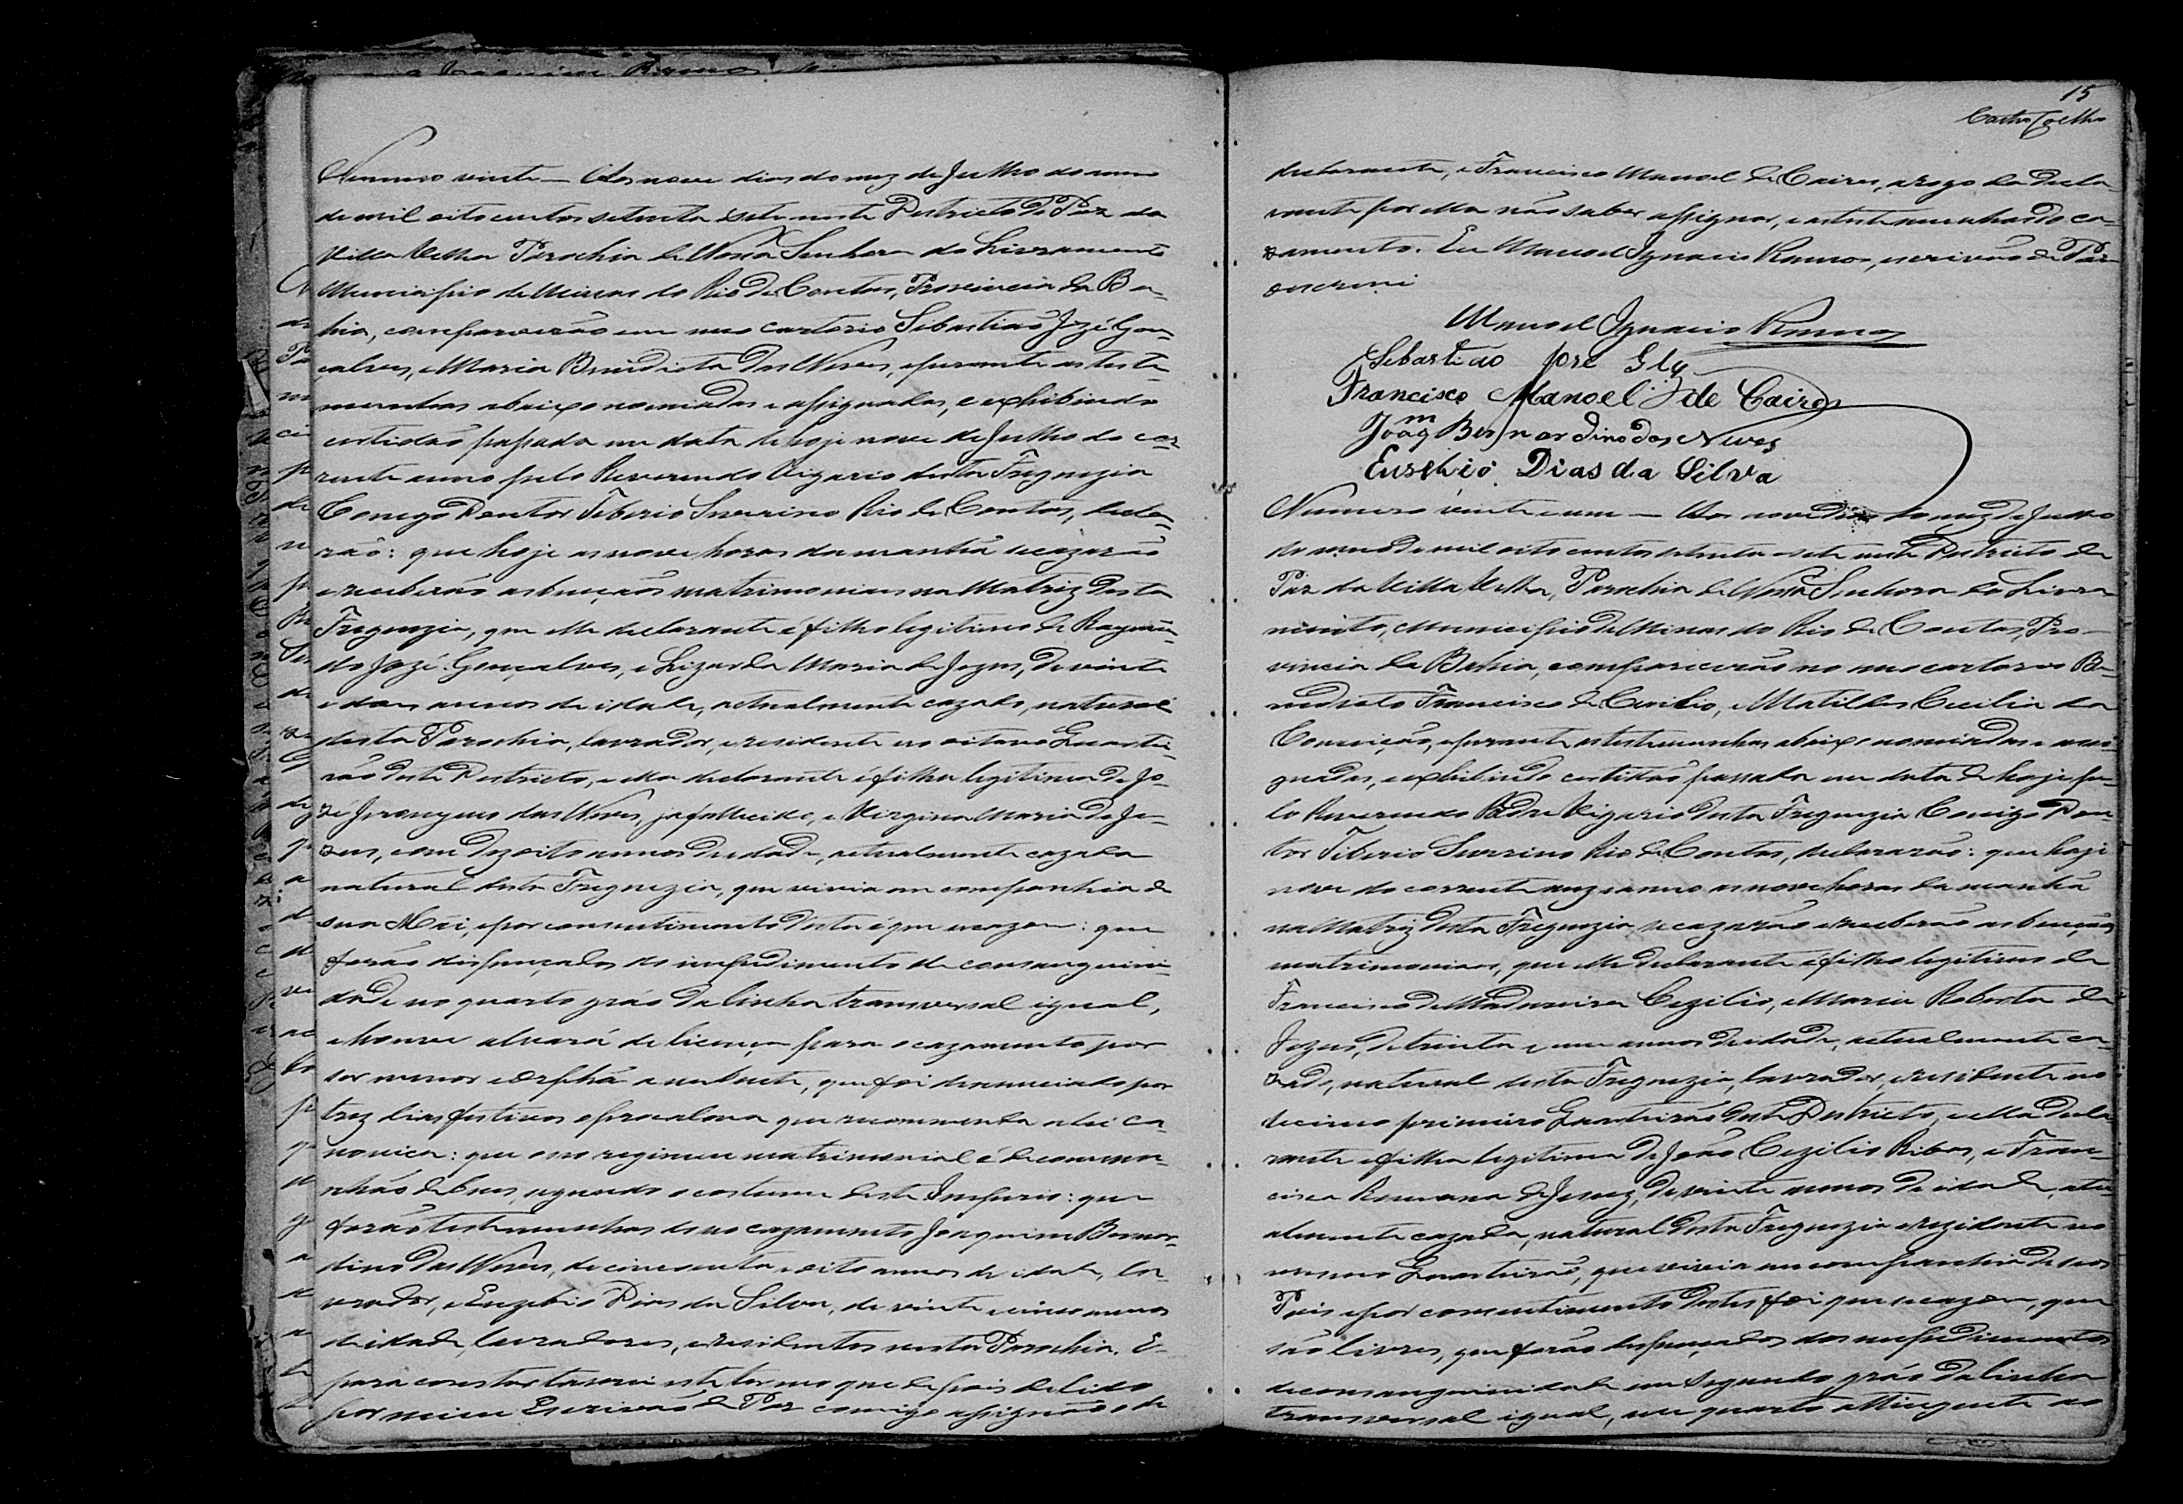 Numero vinte — Aos nove dias do mez de Julho do anno
de mil oito centos setenta e sete neste Destricto de Paz da
Villa Velha Parochia de Nossa Senhora do Livramento
Municipio de Minas do Rio de Contas, Provincia da Ba-
hia, comparecerão em meu cartorio Sebastião Jozé Gon-
çalves, e Maria Benedicta das Neves, e perante as teste-
munhas abaixo nomiadas e assignadas, e exhibindo
certidão passada em data de hoje nove de Julho do cor-
rente anno pelo Reverendo Vigario desta Freguezia
Conego Doutor Tiberio Severino Rio de Contas, decla-
rão: que hoje as nove horas da manhã se cazarão
e receberão as bençãos matrimoniaes na Matriz desta
Freguezia, que elle declarante é filho legitimo de Raymun-
do Jozé Gonçalves, e Lizarda Maria de Jezus, de vinte
e dous annos de idade, actualmente cazado, natural
desta Parochia, lavrador, e residente no oitavo Quartei-
rão deste Destricto, e ella declarante é filha legitima de Jo-
zé Jeronymo das Neves, já fallecido, e Virginia Maria de Je-
zus, com dezoito annos de idade, actualmente cazada
natural desta Freguezia, que vivia em companhia de
sua Mãi, e por consentimento desta é que se cazou: que
forão dispençados do impedimento de consanguini-
dade no quarto gráo da linha transversal igual,
e houve alvará de licença para o cazamento por
ser menor e orphã a nubente, que foi denunciado por
trez dias festivos a proclama que recommenda a lei ca-
nonica: que o seo regimen matrimonial é de commu-
nhão de bens, segundo o costume deste Imperio: que
forão testemunhas do seo cazamento Joaquim Bernar-
dino das Neves, de cincoenta e oito annos de idade, la-
vrador, e Euzebio Dias da Silva, de vinte e cinco annos
de idade, lavradores, e residentes nesta Parochia. E
para constar lavrei este termo que depois de lido
por mim Escrivão de Paz comigo assignão o de
15
Castro Coelho
declarante, e Francisco Manoel de Caires, a rogo da decla-
rante por ella não saber assignar, e as testemunhas do ca-
zamento. Eu Manoel Ignacio Ramos, escrivão de Paz
o escrevi
Manoel Ignacio Ramos
Sebastião José Glz
Francisco Manoel de Caires
Joaqm Bernardino das Neves
Eusebio Dias da Silva
Numero vinte e um — Aos nove dias do mez de Julho
do anno de mil oito centos setenta e sete neste Destricto de
Paz da Villa Velha, Parochia de Nossa Senhora do Livra
mento, Municipio de Minas do Rio de Contas, Pro-
vincia da Bahia, comparecerão no meu cartorio Be-
nedicto Francisco de Cecilio, e Matildes Cecilia da
Conceição, e perante as testemunhas abaixo nomiadas e assi-
gnadas, e exhibindo certidão passada em data de hoje pe-
lo Reverendo Padre Vigario desta Freguezia Conego Dou-
tor Tiberio Severino Rio de Contas, declararão: que hoje
nove do corrente mez e anno as nove horas da manhã
na Matriz desta Freguezia se cazarão e receberão as bençãos
matrimoniaes, que elle declarante é filho legitimo de
Francisco de Madureira Cezilio, e Maria Roberta de
Jezus, de trinta e um annos de idade, actualmente ca-
zado, natural desta Freguezia, lavrador, e residente no
decimo primeiro Quarteirão deste Destricto, e ella decla-
rante é filha legitima de João Cezilio Ribas, e Fran-
cisca Romana de Jesuz, de vinte annos de idade, atu-
almente cazada, natural desta Freguezia e rezidente no
mesmo Quarteirão, que vivia em companhia de seos
Pais e por consentimento destes foi que se cazou, que
são livres, que forão despençados dos impedimentos
de consanguinidade em segundo gráo da linha
transversal igual, em quarto attingente ao